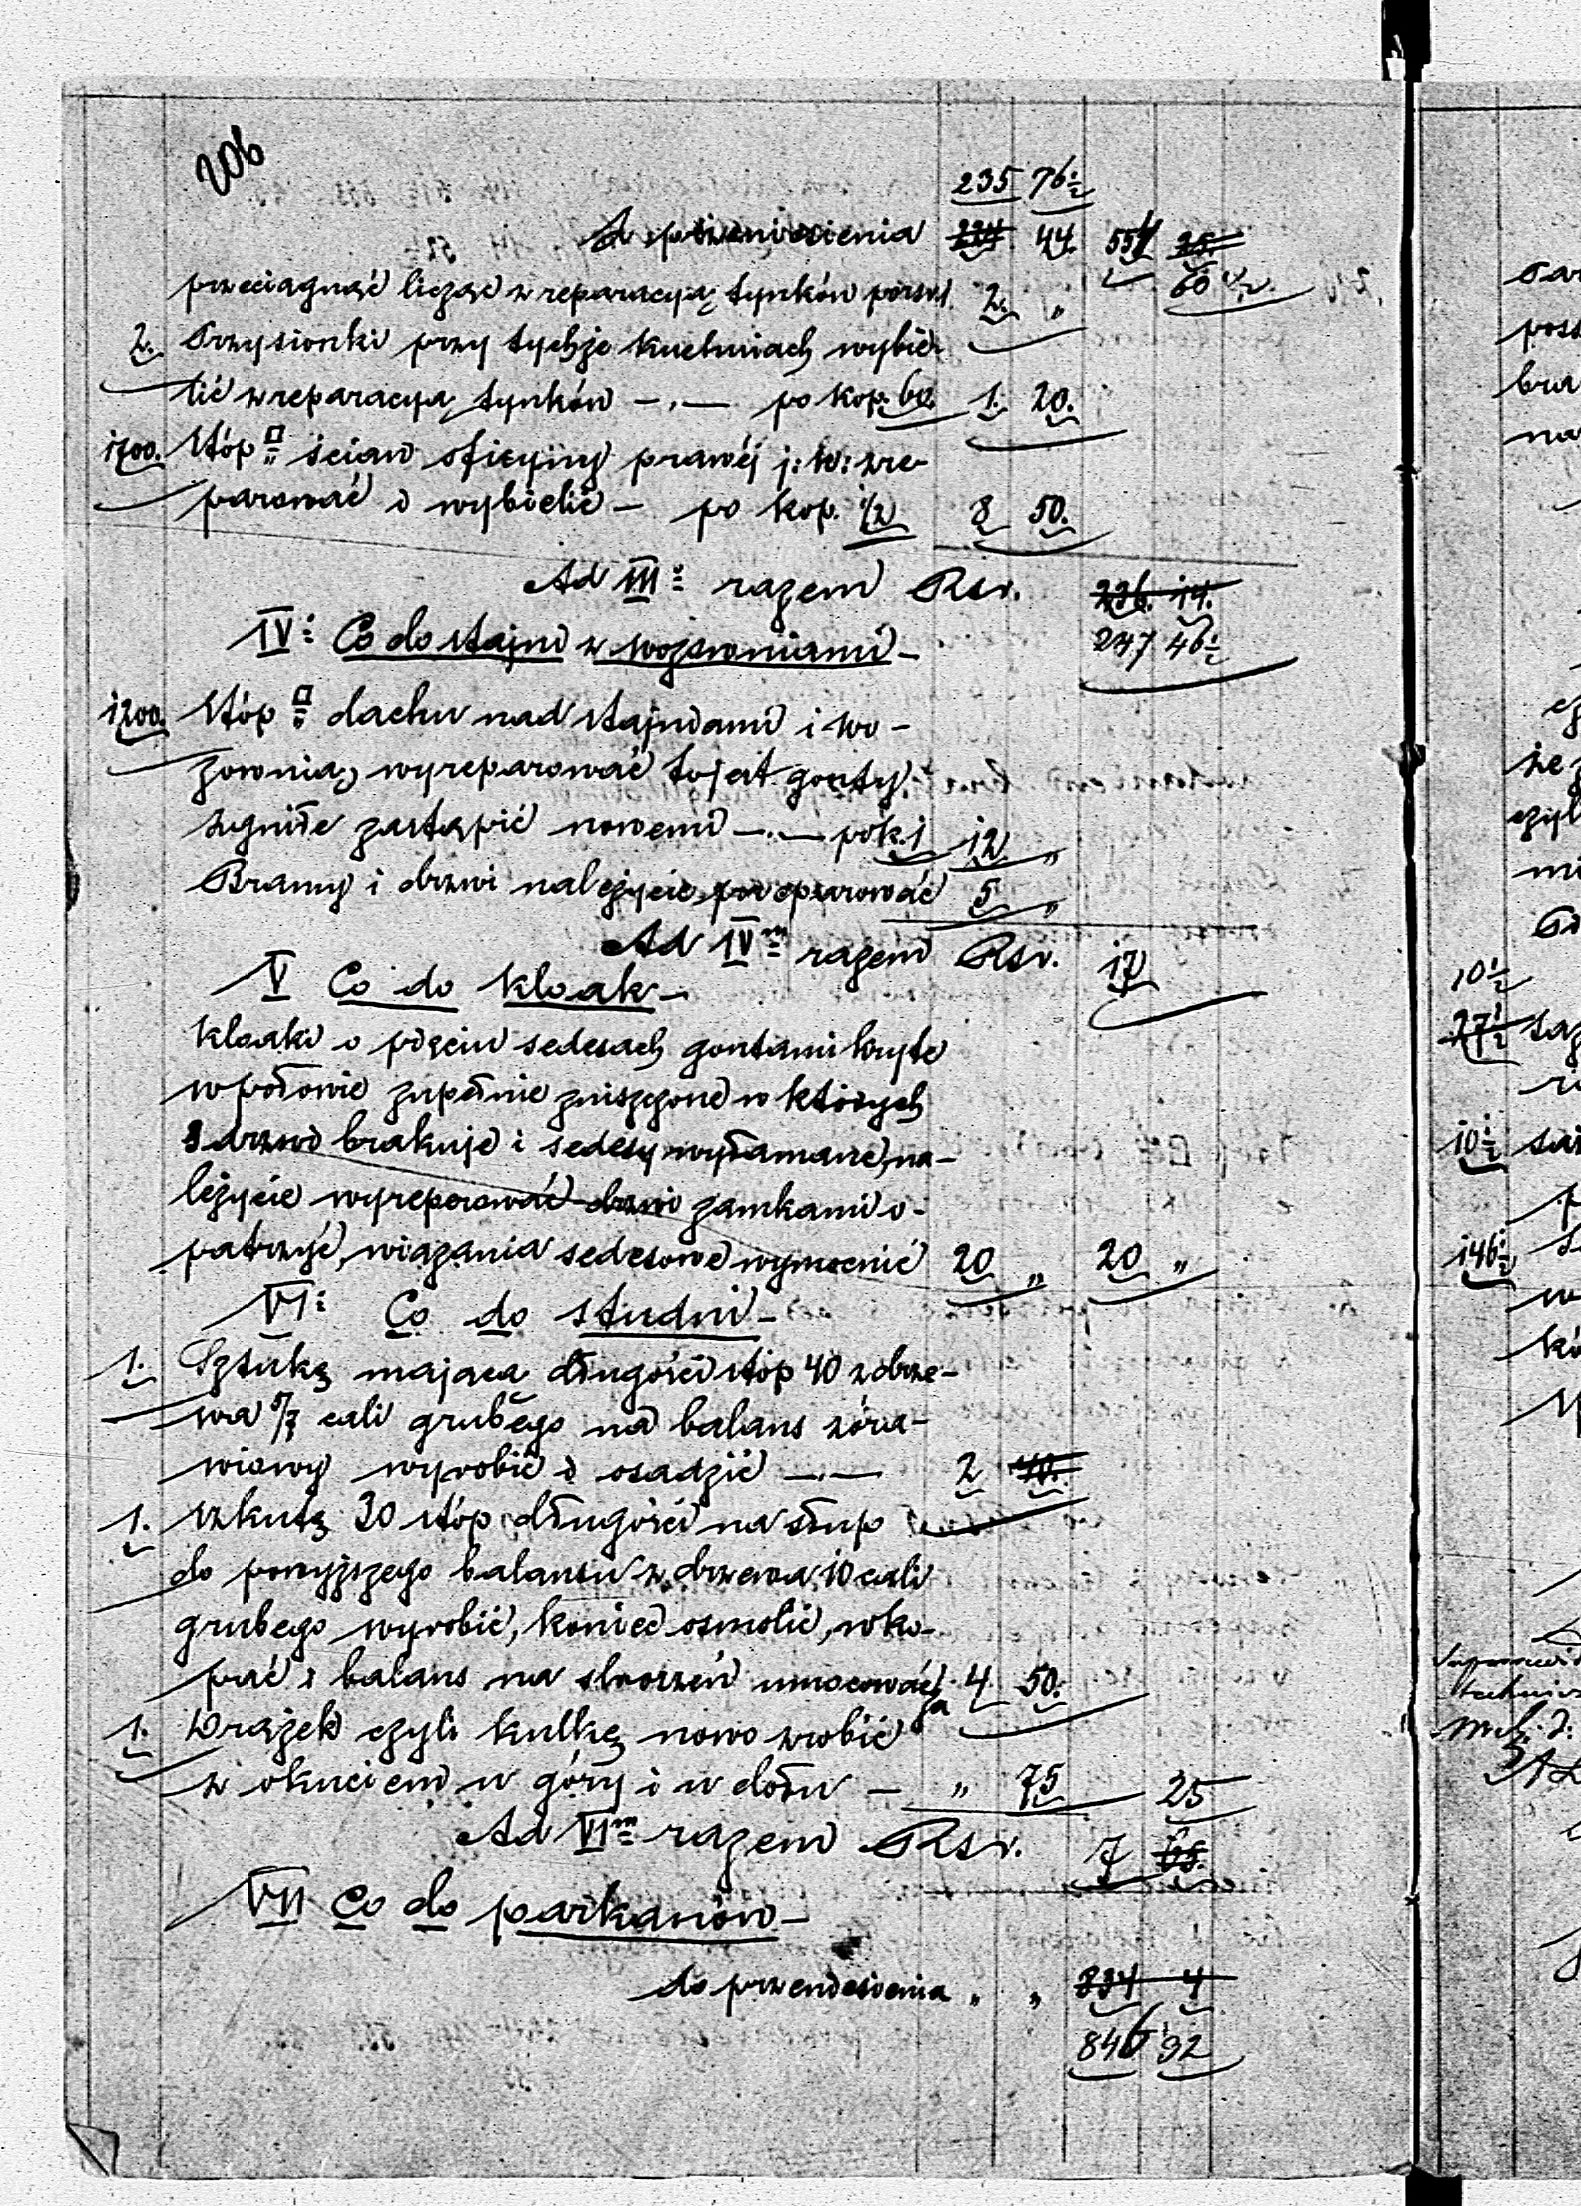 206
235 76½
Z przeniesienia 224 44. 554 25.
przeciągnąć licząc z reparacyą tynków po rsr. 1. 2. " 60½.
2. Przysionki przy tychże kuchniach wybie-
lić z reparacyą tynków —.— po kop. 60. 1. 20.
1700. Stóp □ ścian oficyny prawéj j: w: zre-
parować i wybielić — po kop. ½ 8 50.
Ad III: razem Rsr. 236. 14.
247 46½
IV: Co do stajni z wozowniami —
1200. Stóp □ dachu nad stajniami i wo-
zownią, wyreparować to jest gonty
zgniłe zastąpić nowemi —.— po k. 1 12 "
Bramy i drzwi należycie poreparować 5 "
Ad IVm razem Rsr. 17
V Co do kloak —
Kloaki o pięciu sedesach gontami kryte
w połowie zupełnie zniszczone w których
3 drzwi brakuje i sedesy wyłamane, na-
leżycie wyreperować drzwi zamkami o-
patrzyć, wiązania sedesowe wymocnić 20 " 20 "
VI: Co do studni —
1. Sztukę mającą długości stóp 40 z drze-
wa 5/7 cali grubego na balans żóra-
wiowy wyrobić i osadzić —.— 2 40.
1. Sztukę 30 stóp długości na słup
do powyższego balansu z drzewa 10 cali
grubego wyrobić, koniec osmolić, wko-
pać i balans na sworzeń umocować 4. 50.
1. Drążek czyli kulkę nowo zrobić
z okuciem u góry i u dołu — " 75 25
Ad VIm razem Rsr. 7 65.
VII Co do parkanów —
do przeniesienia " " 834 4
846 92
10½
27½
10½
146½